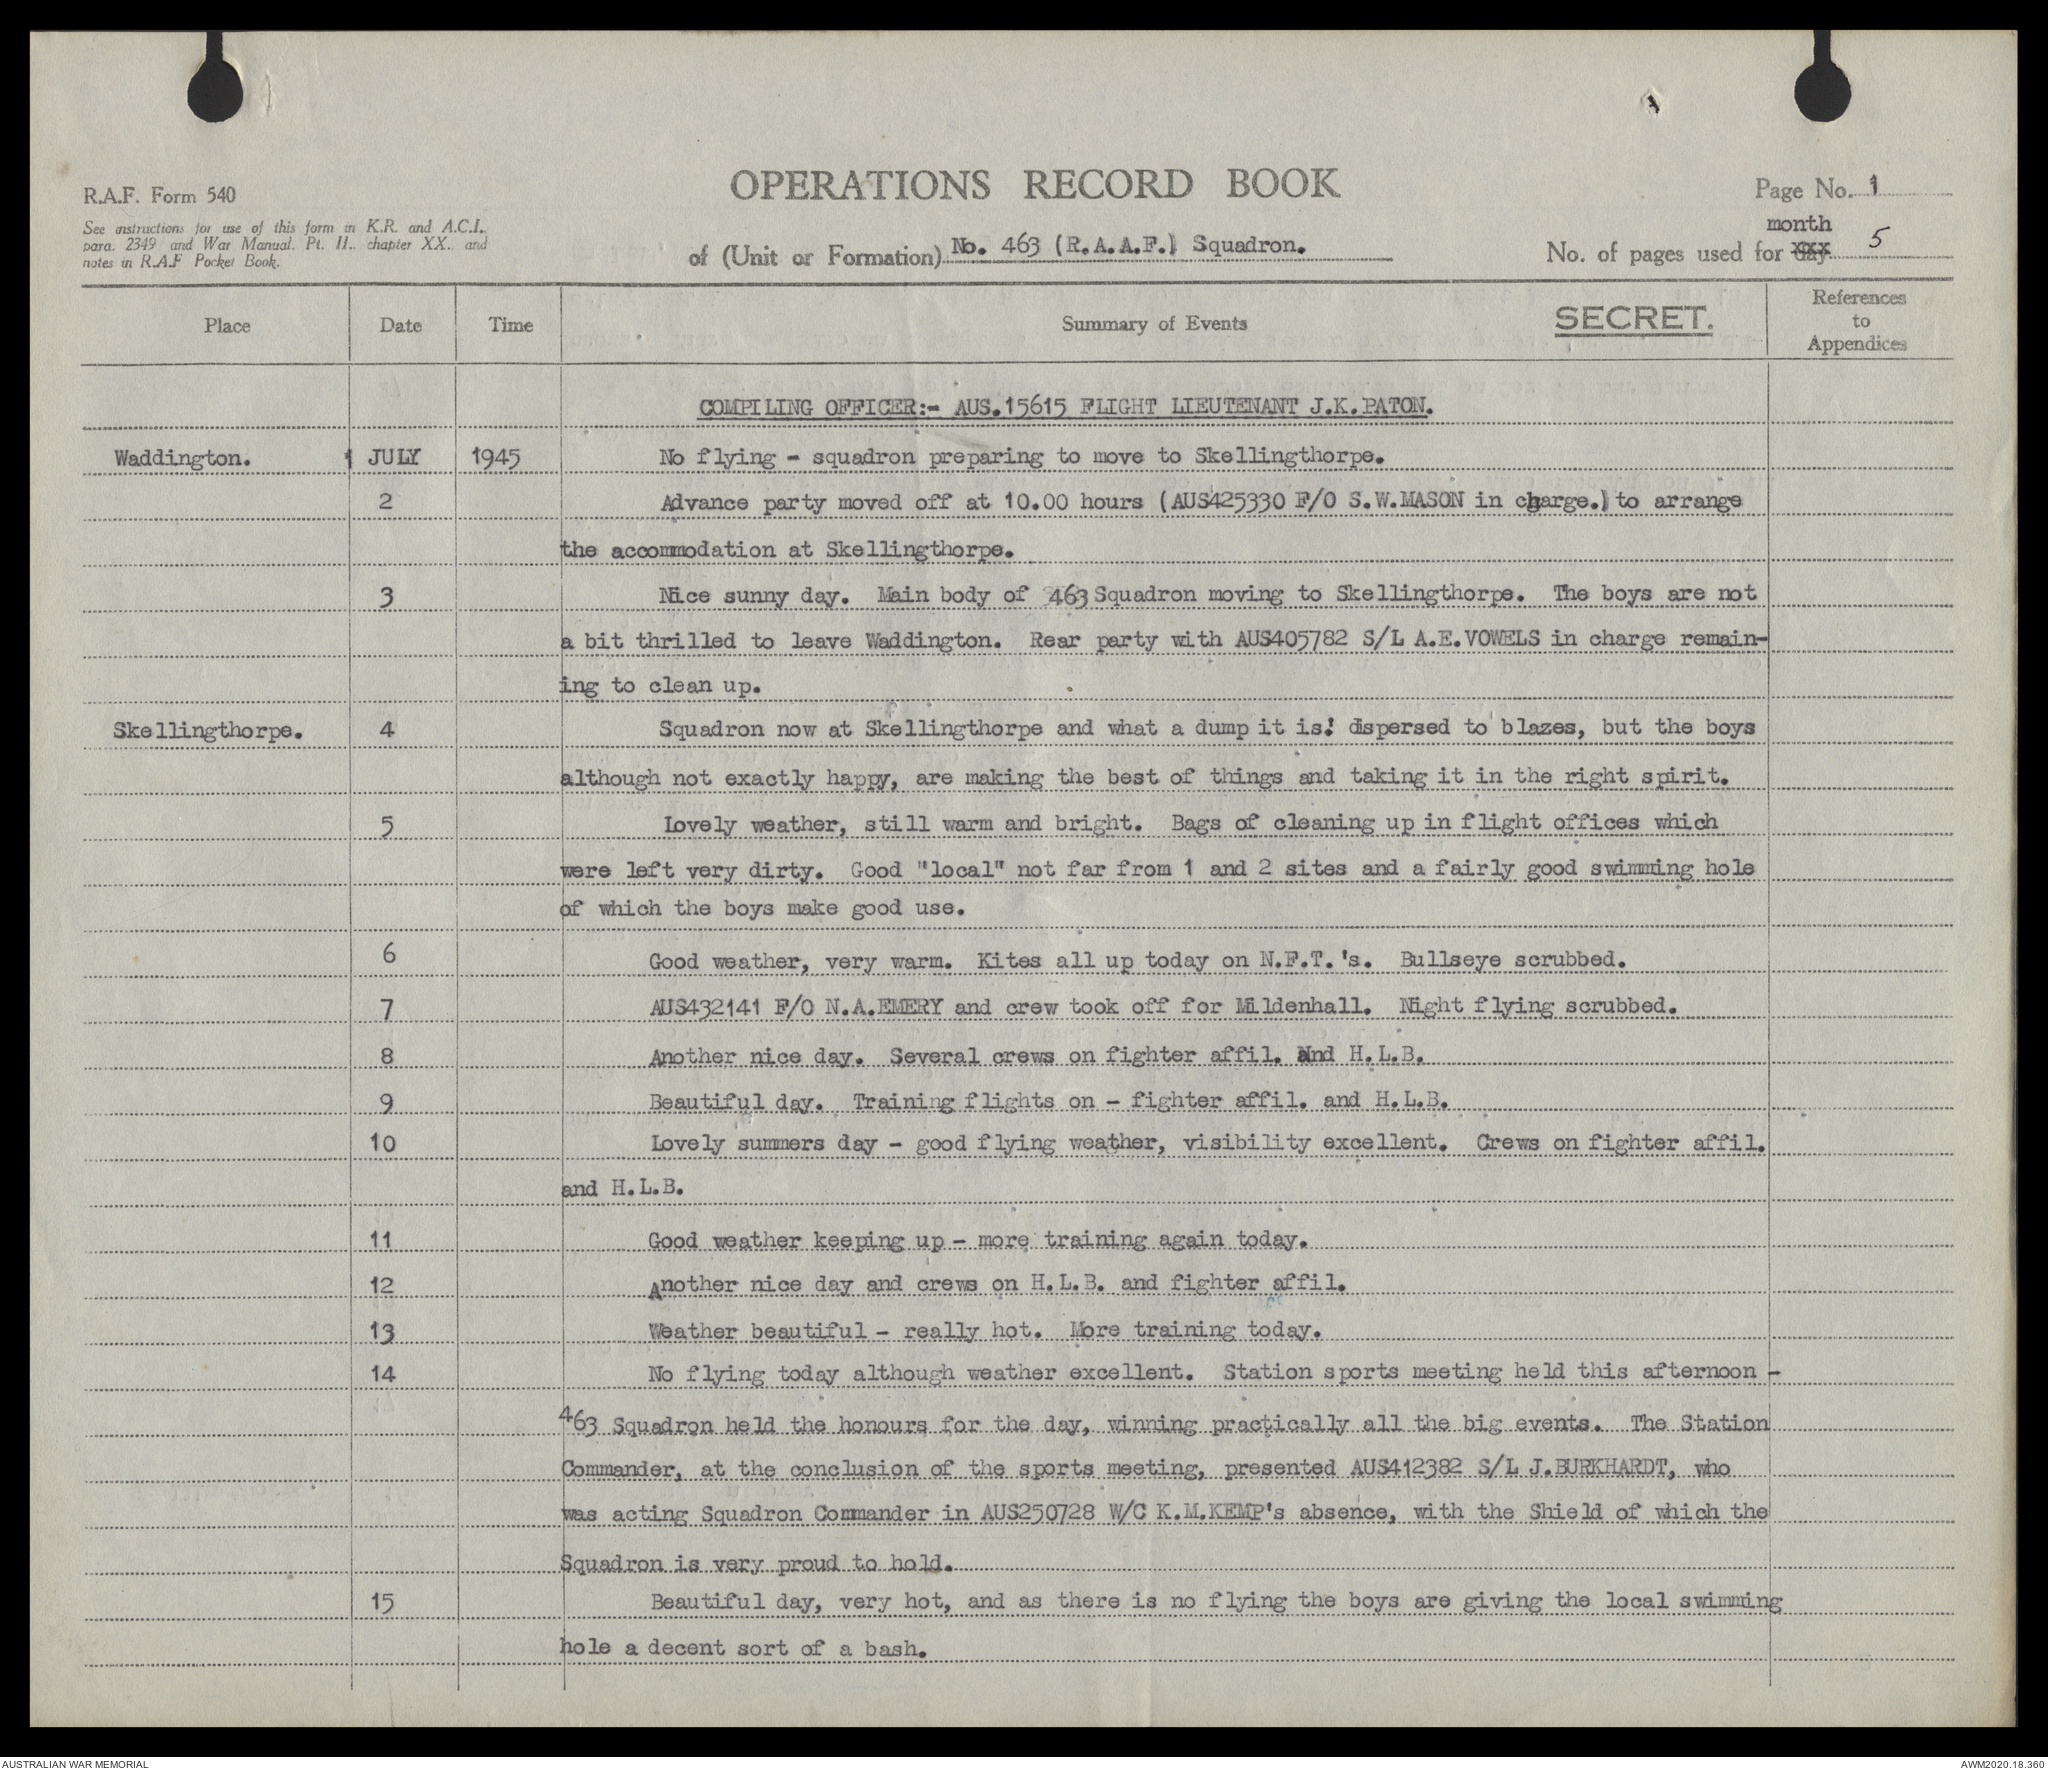 R.A.F. Form 540
See instructions for use of this form in K.R. and A.C.I.,
para. 2349 and War Manual. Pt. II., chapter XX., and
notes in R.A.F Pocket Book.
OPERATIONS RECORD BOOK
of (Unit or Formation) No. 463 (R.A.A.F.) Squadron.
Page No. 1
month
No. of pages used for day 5
Place Date Time Summary of Events SECRET. References to Appendices
COMPILING OFFICER:- AUS.15615 FLIGHT LIEUTENANT J.K.PATON.
Waddington. 1 JULY 1945 No flying - squadron preparing to move to Skellingthorpe.
2 Advance party moved off at 10.00 hours (AUS425330 F/O S.W.MASON in charge.) to arrange
the accommodation at Skellingthorpe.
3 Nice sunny day. Main body of 463 Squadron moving to Skellingthorpe. The boys are not
a bit thrilled to leave Waddington. Rear party with AUS405782 S/L A.E.VOWELS in charge remain-
ing to clean up.
Skellingthorpe. 4 Squadron now at Skellingthorpe and what a dump it is! dispersed to blazes, but the boys
although not exactly happy, are making the best of things and taking it in the right spirit.
5 Lovely weather, still warm and bright. Bags of cleaning up in flight offices which
were left very dirty. Good "local" not far from 1 and 2 sites and a fairly good swimming hole
of which the boys make good use.
6 Good weather, very warm. Kites all up today on N.F.T.'s. Bullseye scrubbed.
7 AUS432141 F/O N.A.EMERY and crew took off for Mildenhall. Night flying scrubbed.
8 Another nice day. Several crews on fighter affil. And H.L.B.
9 Beautiful day. Training flights on - fighter affil. and H.L.B.
10 Lovely summers day - good flying weather, visibility excellent. Crews on fighter affil.
and H.L.B.
11 Good weather keeping up - more training again today.
12 Another nice day and crews on H.L.B. and fighter affil.
13 Weather beautiful - really hot. More training today.
14 No flying today although weather excellent. Station sports meeting held this afternoon -
463 Squadron held the honours for the day, winning practically all the big events. The Station
Commander, at the conclusion of the sports meeting, presented AUS412382 S/L J.BURKHARDT, who
was acting Squadron Commander in AUS250728 W/C K.M.KEMP's absence, with the Shield of which the
Squadron is very proud to hold.
15 Beautiful day, very hot, and as there is no flying the boys are giving the local swimming
hole a decent sort of a bash.
AUSTRALIAN WAR MEMORIAL
AWM2020.18.360